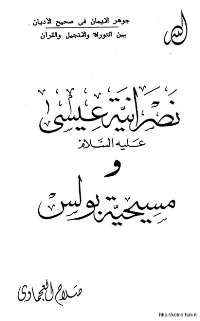 الله
جوهر الإيمان في صحيح الأديان
بين التوراة والإنجيل والقرآن
نصرانية عيسى
عليه السلام
و
مسيحية بولس
صلاح العجماوى